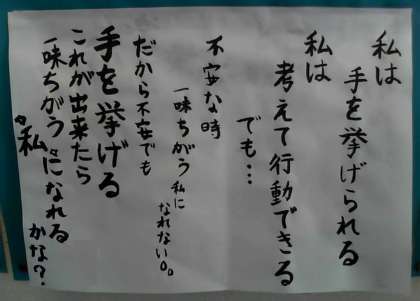 私は
手を挙げられる
私は
考えて行動できる
でも…
不安な時
一味ちがう私に
なれない。。
だから不安でも
手を挙げる
これが出来たら
一味ちがう
“私”になれる
かな?